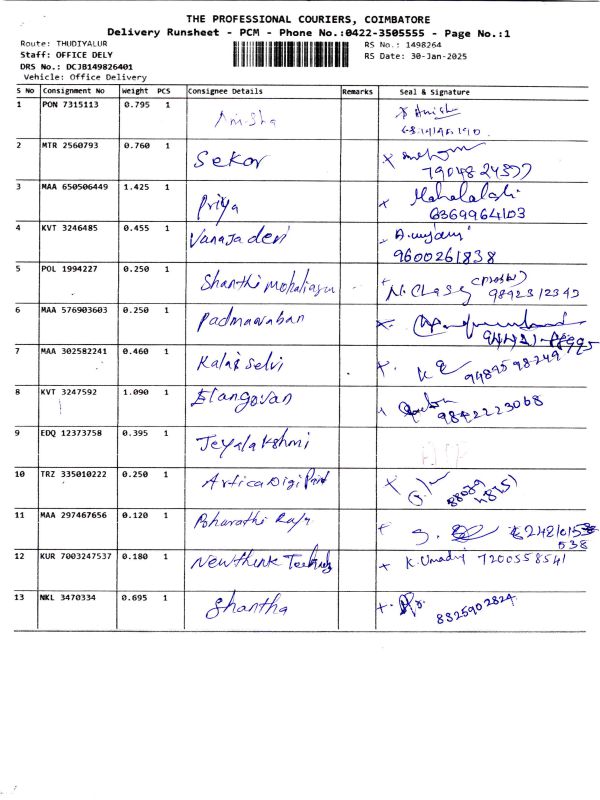 THE PROFESSIONAL COURIERS, COIMBATORE
Delivery Runsheet - PCM - Phone No.:0422-3505555 - Page No.:1
Route: THUDIYALUR RS No.: 1498264
Staff: OFFICE DELY RS Date: 30-Jan-2025
DRS No.: DCJB149826401
Vehicle: Office Delivery
S No Consignment No Weight PCS Consignee Details Remarks Seal & Signature
1 PON 7315113 0.795 1 Anisha x Anish
2 MTR 2560793 0.760 1 Sekar x
7904824577
3 MAA 650506449 1.425 1 Priya x Mahalakshi
6369964103
4 KVT 3246485 0.455 1 Vanaja devi
9600261838
5 POL 1994227 0.250 1 Shanthi
9842312343
6 MAA 576903603 0.250 1 Padmanaban x.
7 MAA 302582241 0.460 1 Kalai selvi +.
9489598249
8 KVT 3247592 1.090 1 Elangovan
9842223068
9 EDQ 12373758 0.395 1 Jeyalakshmi
10 TRZ 335010222 0.250 1 Artica Digi Print +
11 MAA 297467656 0.120 1 Bharathi Raja + S.
538
12 KUR 7003247537 0.180 1 Newthink + K. Umadvi 7200558541
13 NKL 3470334 0.695 1 Shantha +.
8825902824